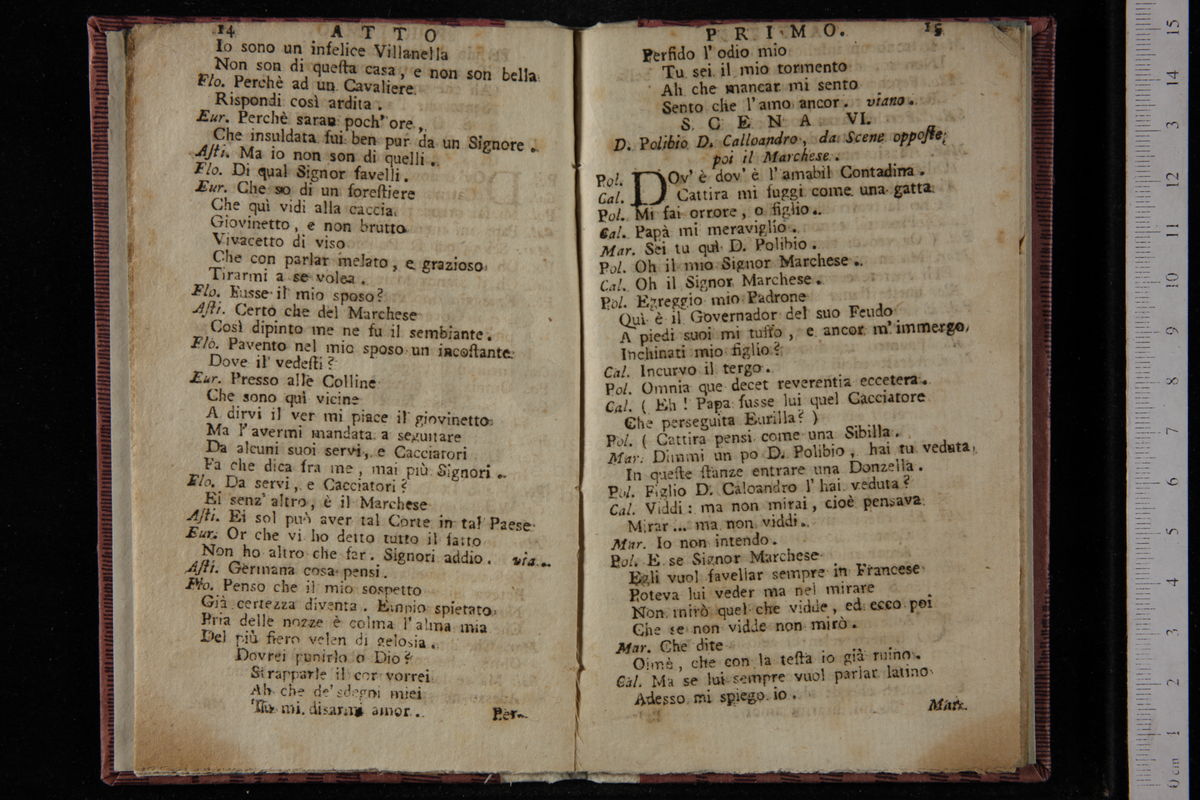 14 ATTO
Io sono un infelice Villanella
Non son di queſta casa, e non son bella.
Flo. Perchè ad un Cavaliere
Rispondi così ardita.
Eur. Perchè saran poch' ore,
Che insuldata fui ben pur da un Signore.
Aſti. Ma io non son di quelli.
Flo. Di qual Signor favelli.
Eur. Che so di un foreſtiere
Che quì vidi alla caccia
Giovinetto, e non brutto
Vivacetto di viso
Che con parlar melato, e grazioso
Tirarmi a se volea.
Flo. Fusse il mio sposo?
Aſti. Certo che del Marchese
Così dipinto me ne fu il sembiante.
Flo. Pavento nel mio sposo un incoſtante.
Dove il vedeſti?
Eur. Presso alle Colline
Che sono quì vicine
A dirvi il ver mi piace il giovinetto
Ma l'avermi mandata a seguitare
Da alcuni suoi servi, e Cacciatori
Fa che dica fra me, mai più Signori.
Flo. Da servi, e Cacciatori?
Ei senz' altro, è il Marchese
Aſti. Ei sol può aver tal Corte in tal Paese
Eur. Or che vi ho detto tutto il fatto
Non ho altro che far. Signori addio. via.
Aſti. Germana cosa pensi.
Flo. Penso che il mio sospetto
Già certezza diventa. Empio spietato
Pria delle nozze è colma l'alma mia
Del più fiero velen di gelosia.
Dovrei punirlo o Dio?
Strapparle il cor vorrei
Ah che de' sdegni miei
Tu mi disarmi amor.
Per-
PRIMO. 15
Perfido l' odio mio
Tu sei il mio tormento
Ah che mancar mi sento
Sento che l'amo ancor. viano.
SCENA VI.
D. Polibio D. Calloandro, da Scene oppoſte;
poi il Marchese.
Pol. DOv' è dov' è l'amabil Contadina.
Cal. Cattira mi fuggì come una gatta
Pol. Mi fai orrore, o figlio.
Cal. Papà mi meraviglio.
Mar. Sei tu quì D. Polibio.
Pol. Oh il mio Signor Marchese.
Cal. Oh il Signor Marchese.
Pol. Egreggio mio Padrone
Quì è il Governador del suo Feudo
A piedi suoi mi tuffo, e ancor m' immergo,
Inchinati mio figlio?
Cal. Incurvo il tergo.
Pol. Omnia que decet reverentia eccetera.
Cal. ( Eh! Papà fusse lui quel Cacciatore
Che perseguita Eurilla? )
Pol. ( Cattira pensi come una Sibilla.
Mar. Dimmi un po D. Polibio, hai tu veduta,
In queſte ſtanze entrare una Donzella.
Pol. Figlio D. Caloandro l' hai veduta?
Cal. Viddi: ma non mirai, cioè pensava
Mirar... ma non viddi.
Mar. Io non intendo.
Pol. E se Signor Marchese
Egli vuol favellar sempre in Francese
Poteva lui veder ma nel mirare
Non mirò quel che vidde, ed ecco poi
Che se non vidde non mirò.
Mar. Che dite
Oimè, che con la teſta io già ruino.
Cal. Ma se lui sempre vuol parlar latino
Adesso mi spiego io.
Mar.
0 cm 1 2 3 4 5 6 7 8 9 10 11 12 3 14 15